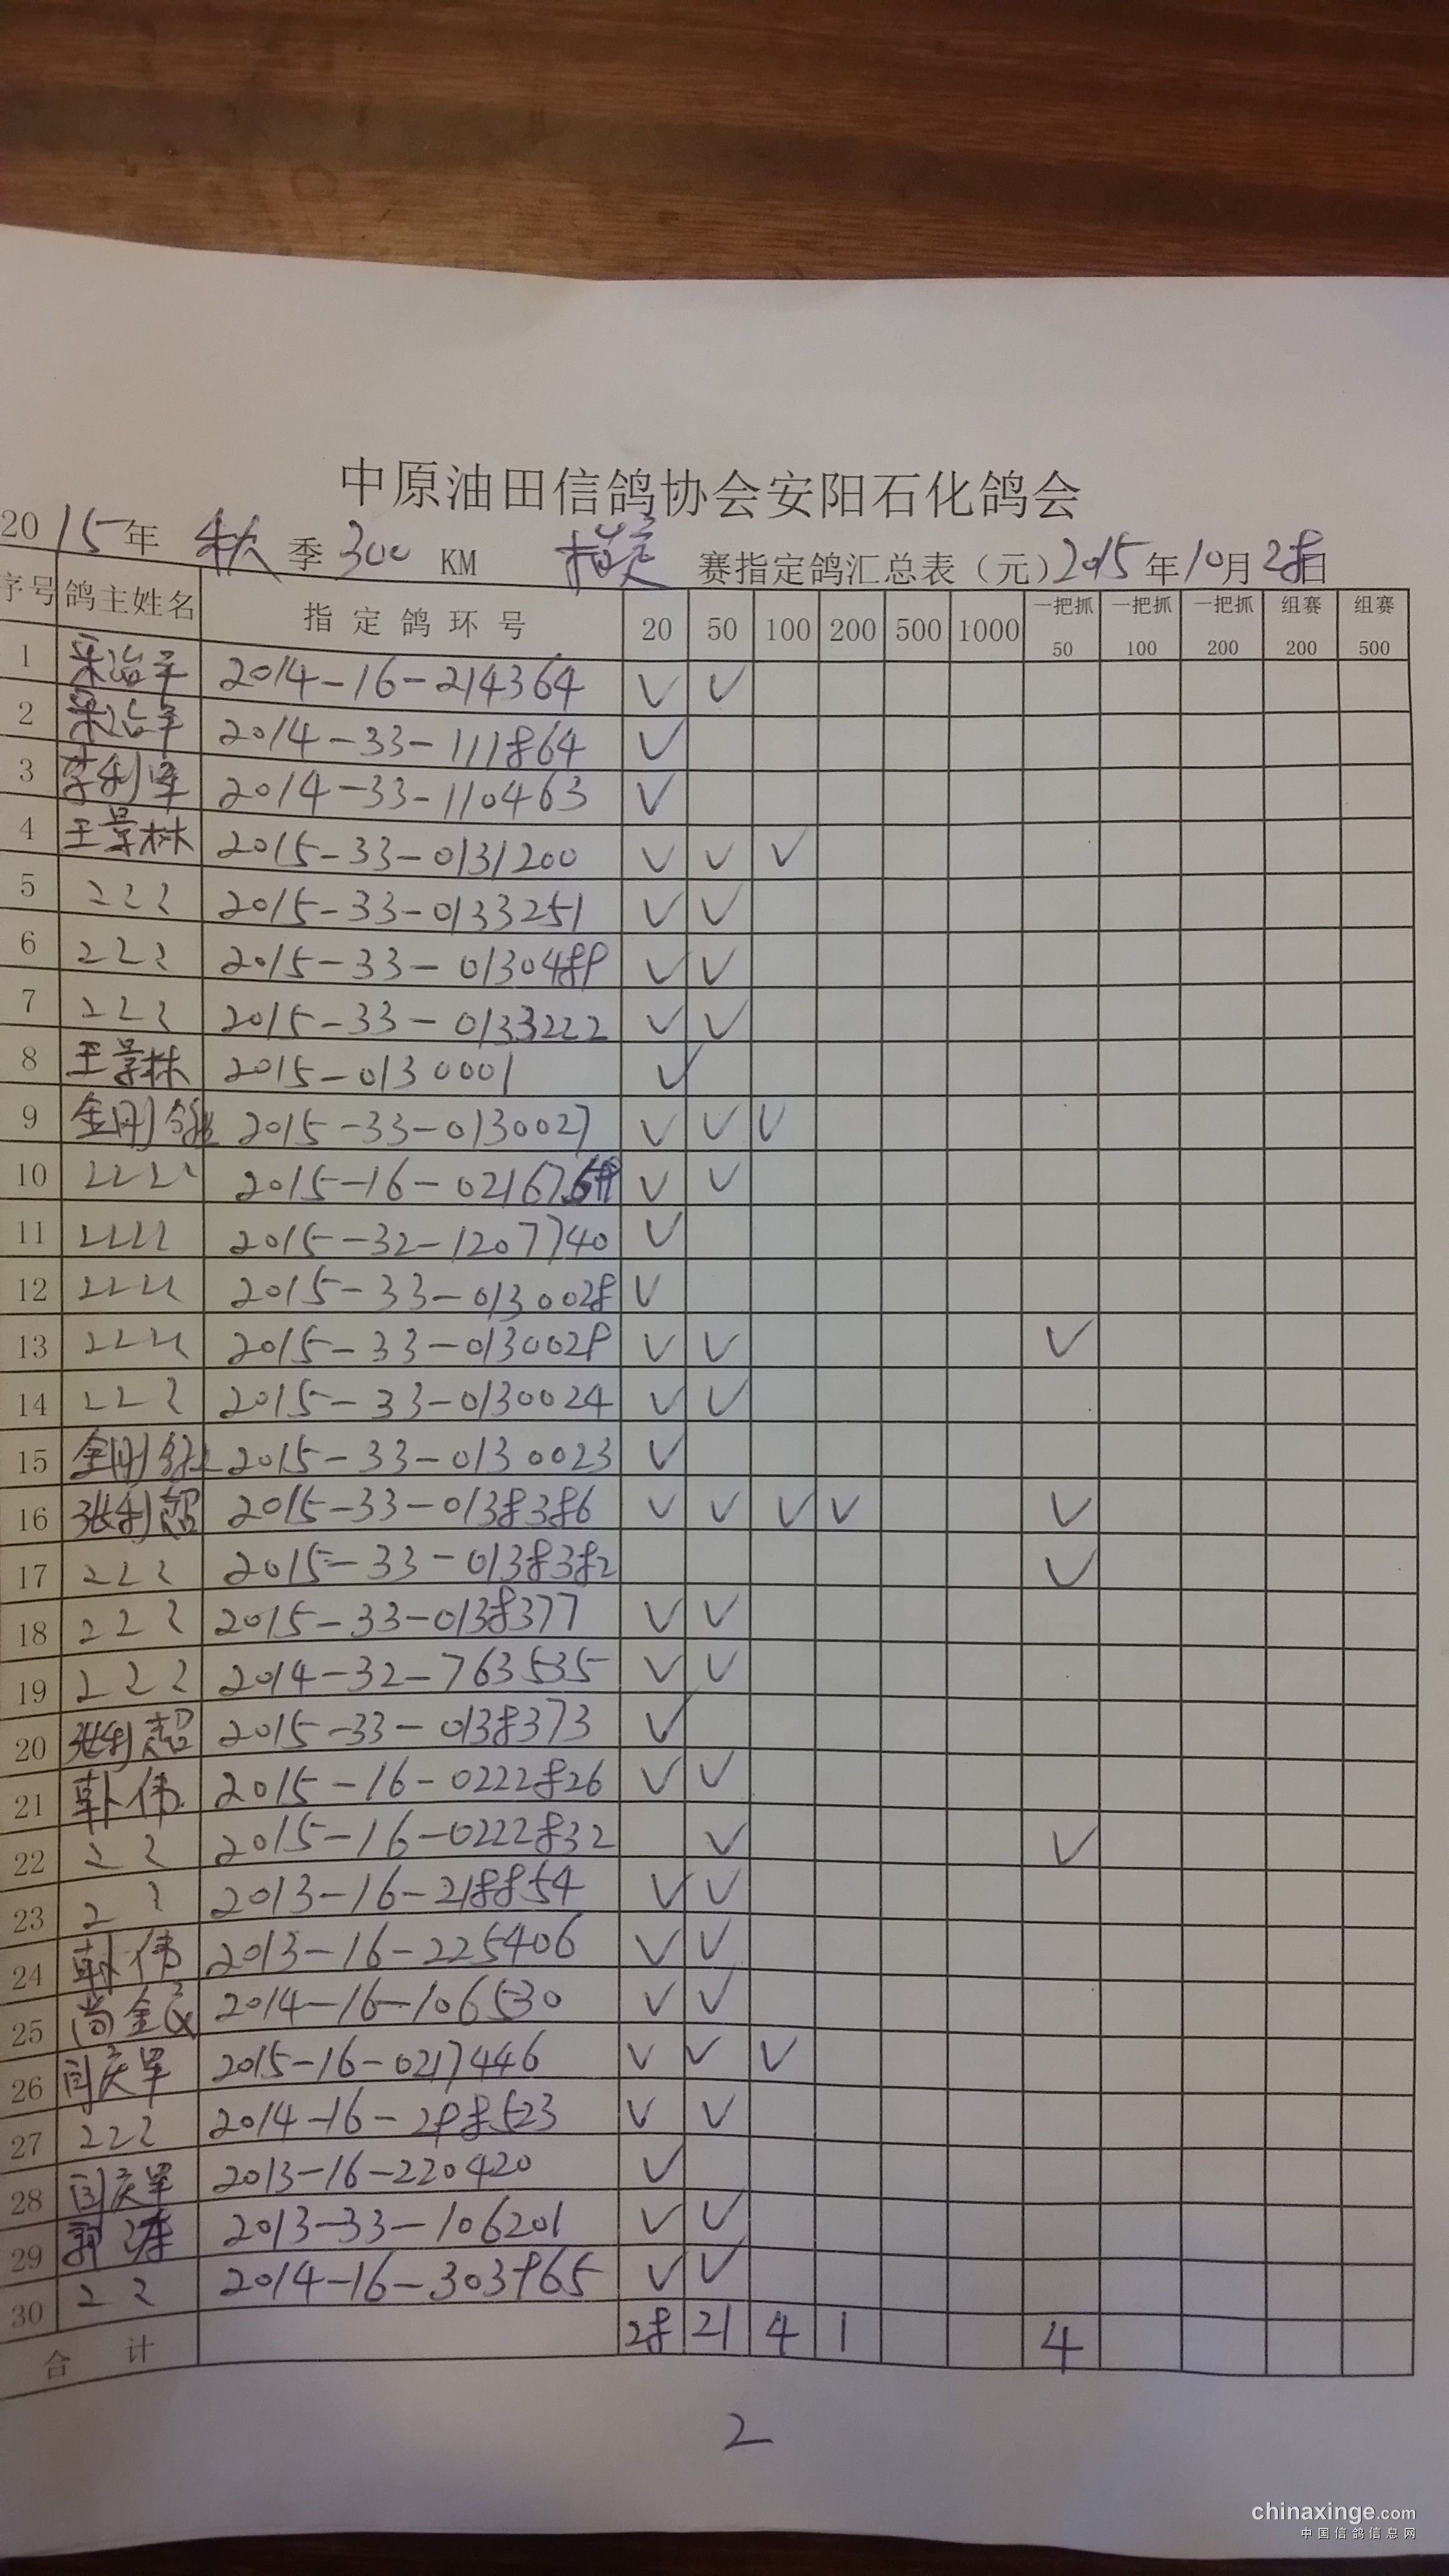 中原油田信鸽协会安阳石化鸽会
2015年 秋 季 300 KM 指定 赛指定鸽汇总表（元）2015年10月28日
序号 鸽主姓名 指定鸽环号 20 50 100 200 500 1000 一把抓50 一把抓100 一把抓200 组赛200 组赛500
1 2014-16-214364 √ √
2 2014-33-111864 √
3 李利军 2014-33-110463 √
4 王景林 2015-33-0131200 √ √ √
5 〃〃〃 2015-33-0133251 √ √
6 〃〃〃 2015-33-0130489 √ √
7 〃〃〃 2015-33-0133222 √ √
8 王景林 2015-0130001 √
9 金刚鸽业 2015-33-0130027 √ √ √
10 〃〃〃〃 2015-16- √ √
11 〃〃〃〃 2015-32-1207740 √
12 〃〃〃〃 2015-33-0130028 √
13 〃〃〃〃 2015-33-0130029 √ √ √
14 〃〃〃 2015-33-0130024 √ √
15 金刚鸽业 2015-33-0130023 √
16 张利超 2015-33-0138386 √ √ √ √ √
17 〃〃〃 2015-33-0138382 √
18 〃〃〃 2015-33-0138377 √ √
19 〃〃〃 2014-32-763535 √ √
20 张利超 2015-33-0138373 √
21 韩伟 2015-16-0222826 √ √
22 〃〃 2015-16-0222832 √ √
23 〃〃 2013-16-218854 √ √
24 韩伟 2013-16-225406 √ √
25 尚金良 2014-16-106530 √ √
26 闫庆军 2015-16-0217446 √ √ √
27 〃〃〃 2014-16-298523 √ √
28 闫庆军 2013-16-220420 √
29 郭涛 2013-33-106201 √ √
30 〃〃 2014-16-303965 √ √
合计 28 21 4 1 4
2
chinaxinge.com
中国信鸽信息网